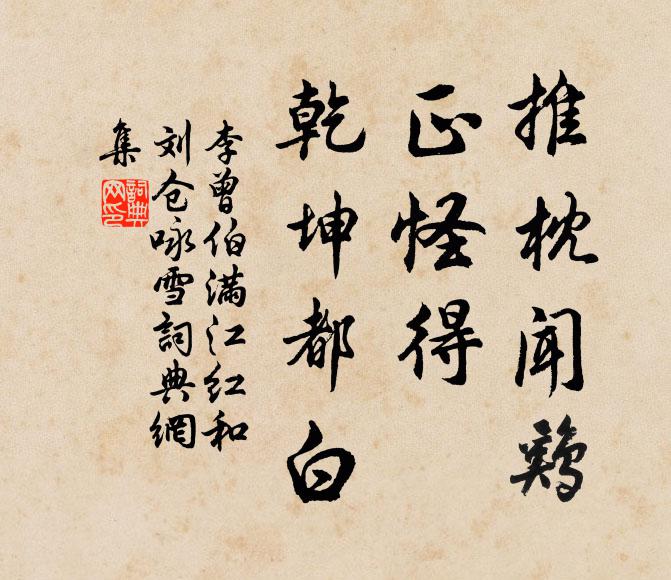 推枕闻鸡
正怪得
乾坤都白
李曾伯满江红和
刘仓咏雪詞典網
集
詞典网印